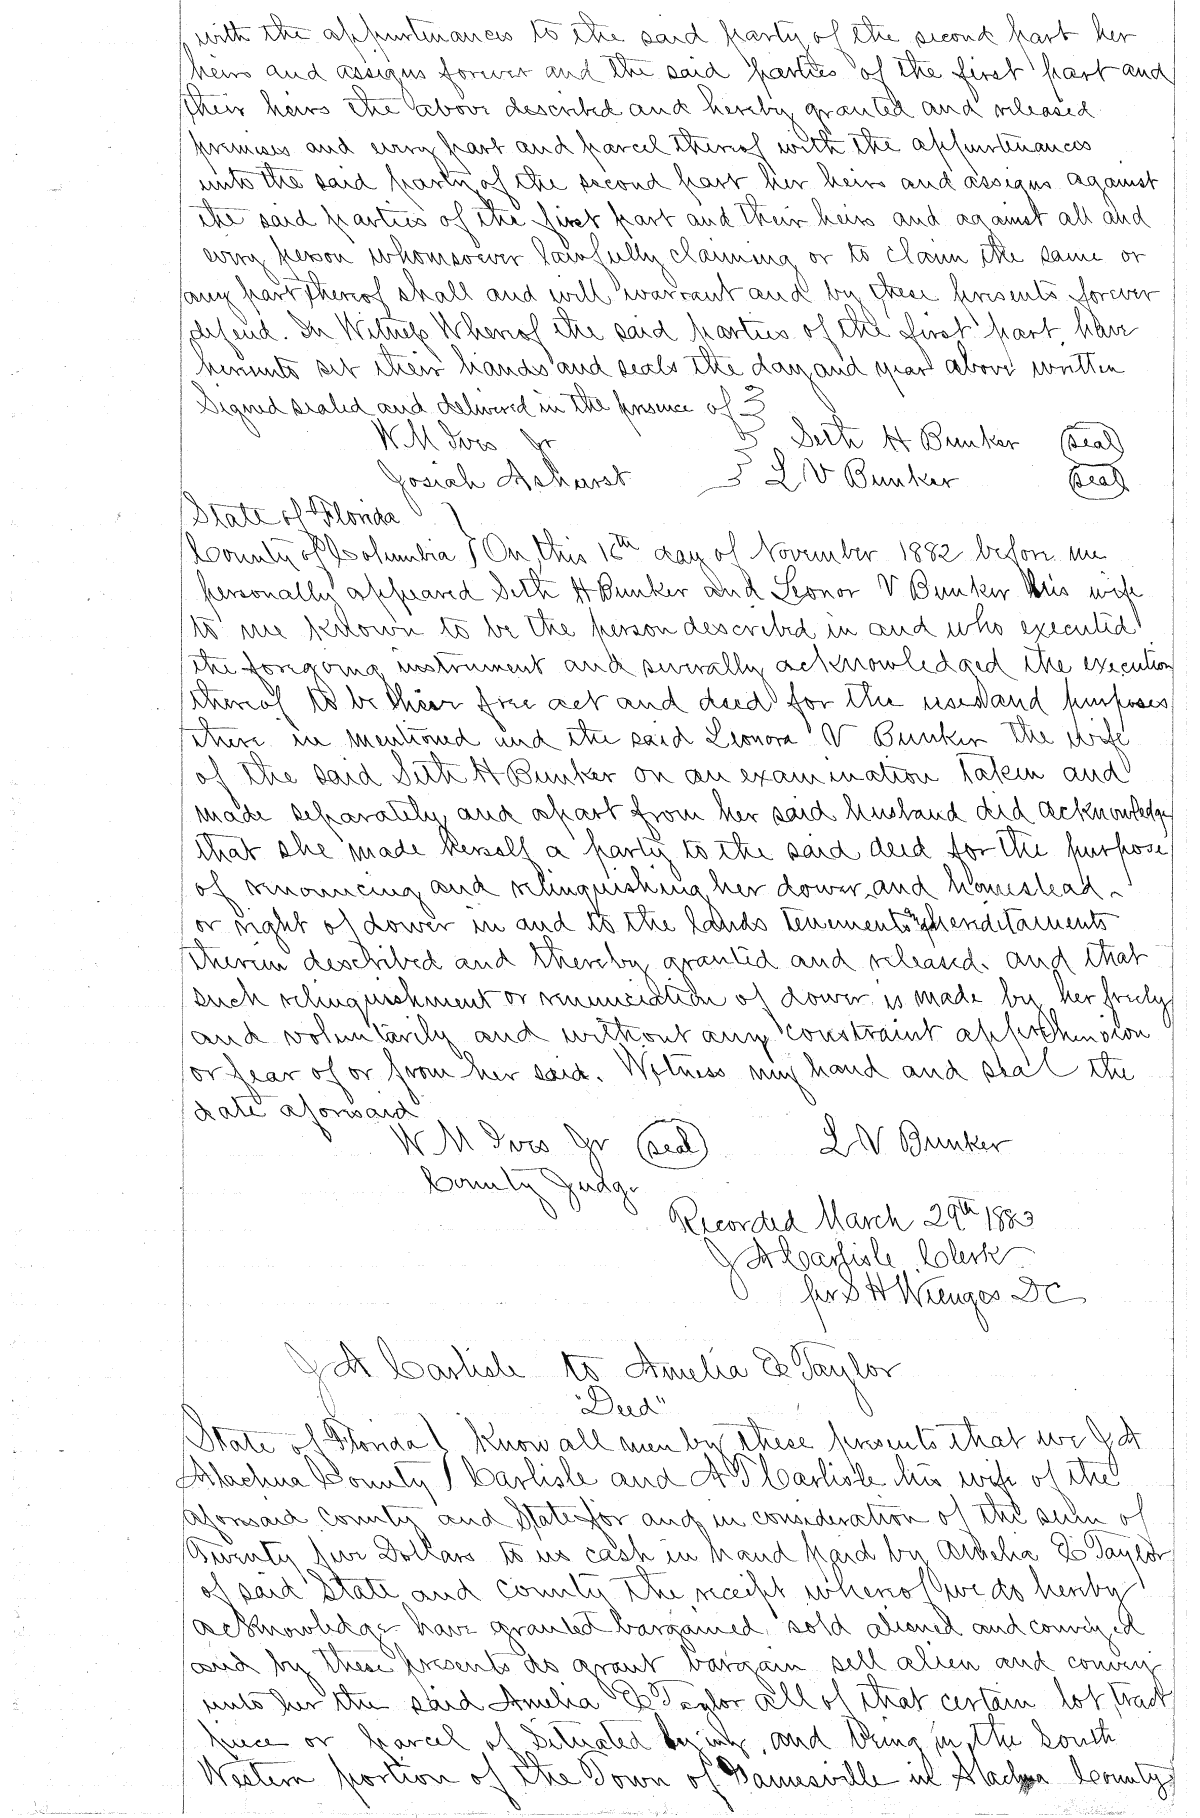 with the appurtenances to the said party of the second part her
heirs and assigns forever and the said parties of the first part and
their heirs the above described and hereby granted and released
premises and every part and parcel thereof with the appurtenances
unto the said party of the second part her heirs and assigns against
the said parties of the first part and their heirs and against all and
every person whomsoever lawfully claiming or to claim the same or
any part thereof shall and will warrant and by these presents forever
defend. In Witness Whereof the said parties of the first part have
hereunto set their hands and seals the day and year above written
Signed sealed and delivered in the presence of
W M Ives Jr Seth H Bunker (seal)
Josiah Ashurst L V Bunker (seal)
State of Florida
County of Columbia } On this 16th day of November 1882 before me
personally appeared Seth H Bunker and Leonor V Bunker his wife
to me known to be the person described in and who executed
the foregoing instrument and severally acknowledged the execution
thereof to be their free act and deed for the uses and purposes
there in mentioned and the said Leonora V Bunker the wife
of the said Seth H Bunker on an examination taken and
made separately and apart from her said husband did acknowledge
that she made herself a party to the said deed for the purpose
of renouncing and relinquishing her dower and homestead
or right of dower in and to the lands tenements and hereditaments
therein described and thereby granted and released. and that
such relinquishment or renunciation of dower is made by her freely
and voluntarily and without any constraint apprehension
or fear of or from her said. Witness my hand and seal the
date aforesaid
W M Ives Jr (seal) L V Bunker
County Judge
Recorded March 29th 1883
J A Carlisle Clerk
per S H Wienges DC
J A Carlisle to Amelia E Taylor
"Deed"
State of Florida } Know all men by these presents that we J A
Alachua County } Carlisle and A T Carlisle his wife of the
aforesaid County and State for and in consideration of the sum of
Twenty five Dollars to us cash in hand paid by Amelia E Taylor
of said State and county the receipt whereof we do hereby
acknowledge have granted bargained sold aliened and conveyed
and by these presents do grant bargain sell alien and convey
unto her the said Amelia E Taylor all of that certain lot tract
piece or parcel of Situated lying, and being in the South
Western portion of the Town of Gainesville in Alachua County